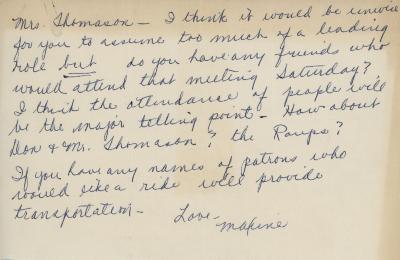 Mrs. Thomason - I think it would be unwise
for you to assume too much of a leading
role but do you have any friends who
would attend that meeting Saturday?
I think the attendance of people will
be the major telling point - How about
Don & Mr. Thomason? the Roups?
If you have any names of patrons who
would like a ride will provide
transportation -
Love -
Maxine